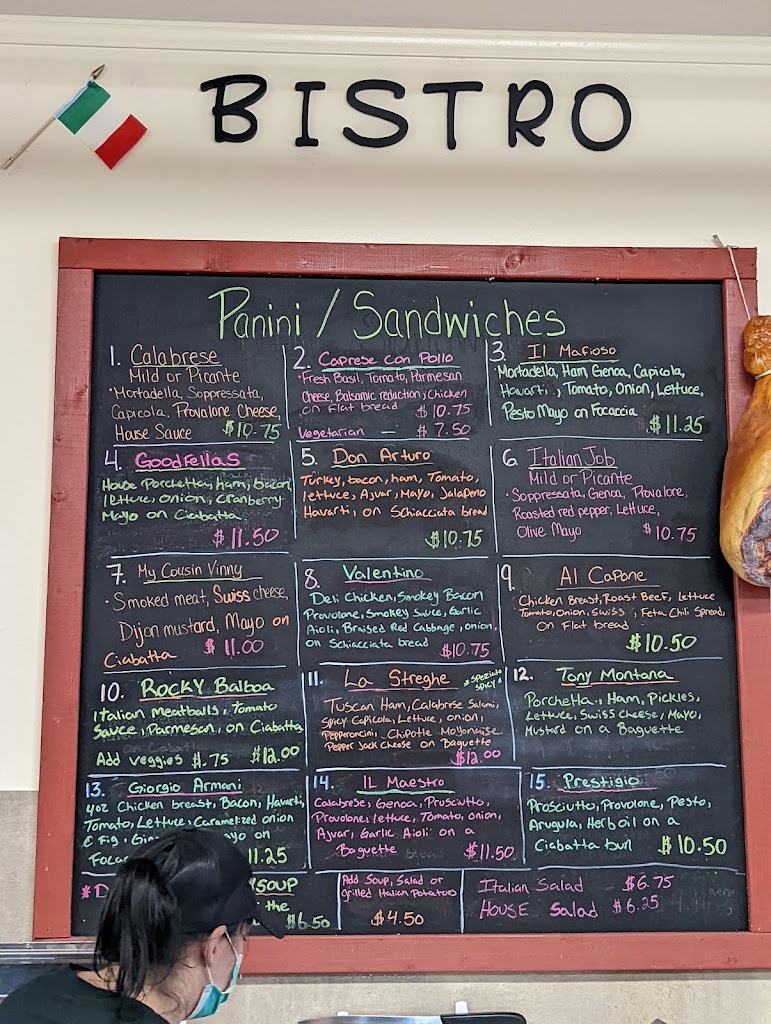 BISTRO
Panini / Sandwiches
1. Calabrese
Mild or Picante
• Mortadella, Soppressata,
Capicola, Provalone Cheese,
House Sauce $10.75
2. Caprese con Pollo
• Fresh Basil, Tomato, Parmesan
Cheese, Balsamic reduction, chicken
on Flat bread $10.75
Vegetarian — $7.50
3. Il Mafioso
• Mortadella, Ham, Genoa, Capicola,
Havarti, Tomato, Onion, Lettuce,
Pesto Mayo on Focaccia
$11.25
4. Goodfellas
House Porchetta, ham, bacon,
lettuce, onion, cranberry
Mayo on Ciabatta
$11.50
5. Don Arturo
Turkey, bacon, ham, Tomato,
lettuce, Ajvar, Mayo, Jalapeno
Havarti, on Schiacciata bread
$10.75
6. Italian Job
Mild or Picante
• Soppressata, Genoa, Provalone,
Roasted red pepper, Lettuce,
Olive Mayo $10.75
7. My Cousin Vinny
• Smoked meat, Swiss cheese,
Dijon mustard, Mayo on
Ciabatta $11.00
8. Valentino
Deli Chicken, Smokey Bacon
Provolone, Smokey Sauce, Garlic
Aioli, Braised Red Cabbage, onion,
on Schiacciata bread $10.75
9. Al Capone
Chicken Breast, Roast Beef, lettuce
Tomato, Onion, Swiss, Feta Chili Spread,
on Flat bread
$10.50
10. Rocky Balboa
Italian meatballs, Tomato
Sauce, Parmesan, on Ciabatta
Add veggies $1.75 $12.00
11. La Streghe *Speziato
Spicy*
Tuscan Ham, Calabrese Salami,
Spicy Capicola, Lettuce, onion,
Pepperoncini, Chipotle Mayonnaise
Pepper Jack Cheese on Baguette
$12.00
12. Tony Montana
Porchetta, Ham, Pickles,
Lettuce, Swiss Cheese, Mayo,
Mustard on a Baguette
13. Giorgio Armani
4oz Chicken breast, Bacon, Havarti,
Tomato, Lettuce, Caramelized onion
& Fig, yo on
Foca 11.25
14. IL Maestro
Calabrese, Genoa, Prusciutto,
Provolone, lettuce, Tomato, onion,
Ajvar, Garlic Aioli on a
Baguette $11.50
15. Prestigio
Prosciutto, Provolone, Pesto,
Arugula, Herb oil on a
Ciabatta bun $10.50
*D SOUP
the
$6.50
Add Soup, Salad or
Grilled Italian Potatoes
$4.50
Italian Salad $6.75
House Salad $6.25